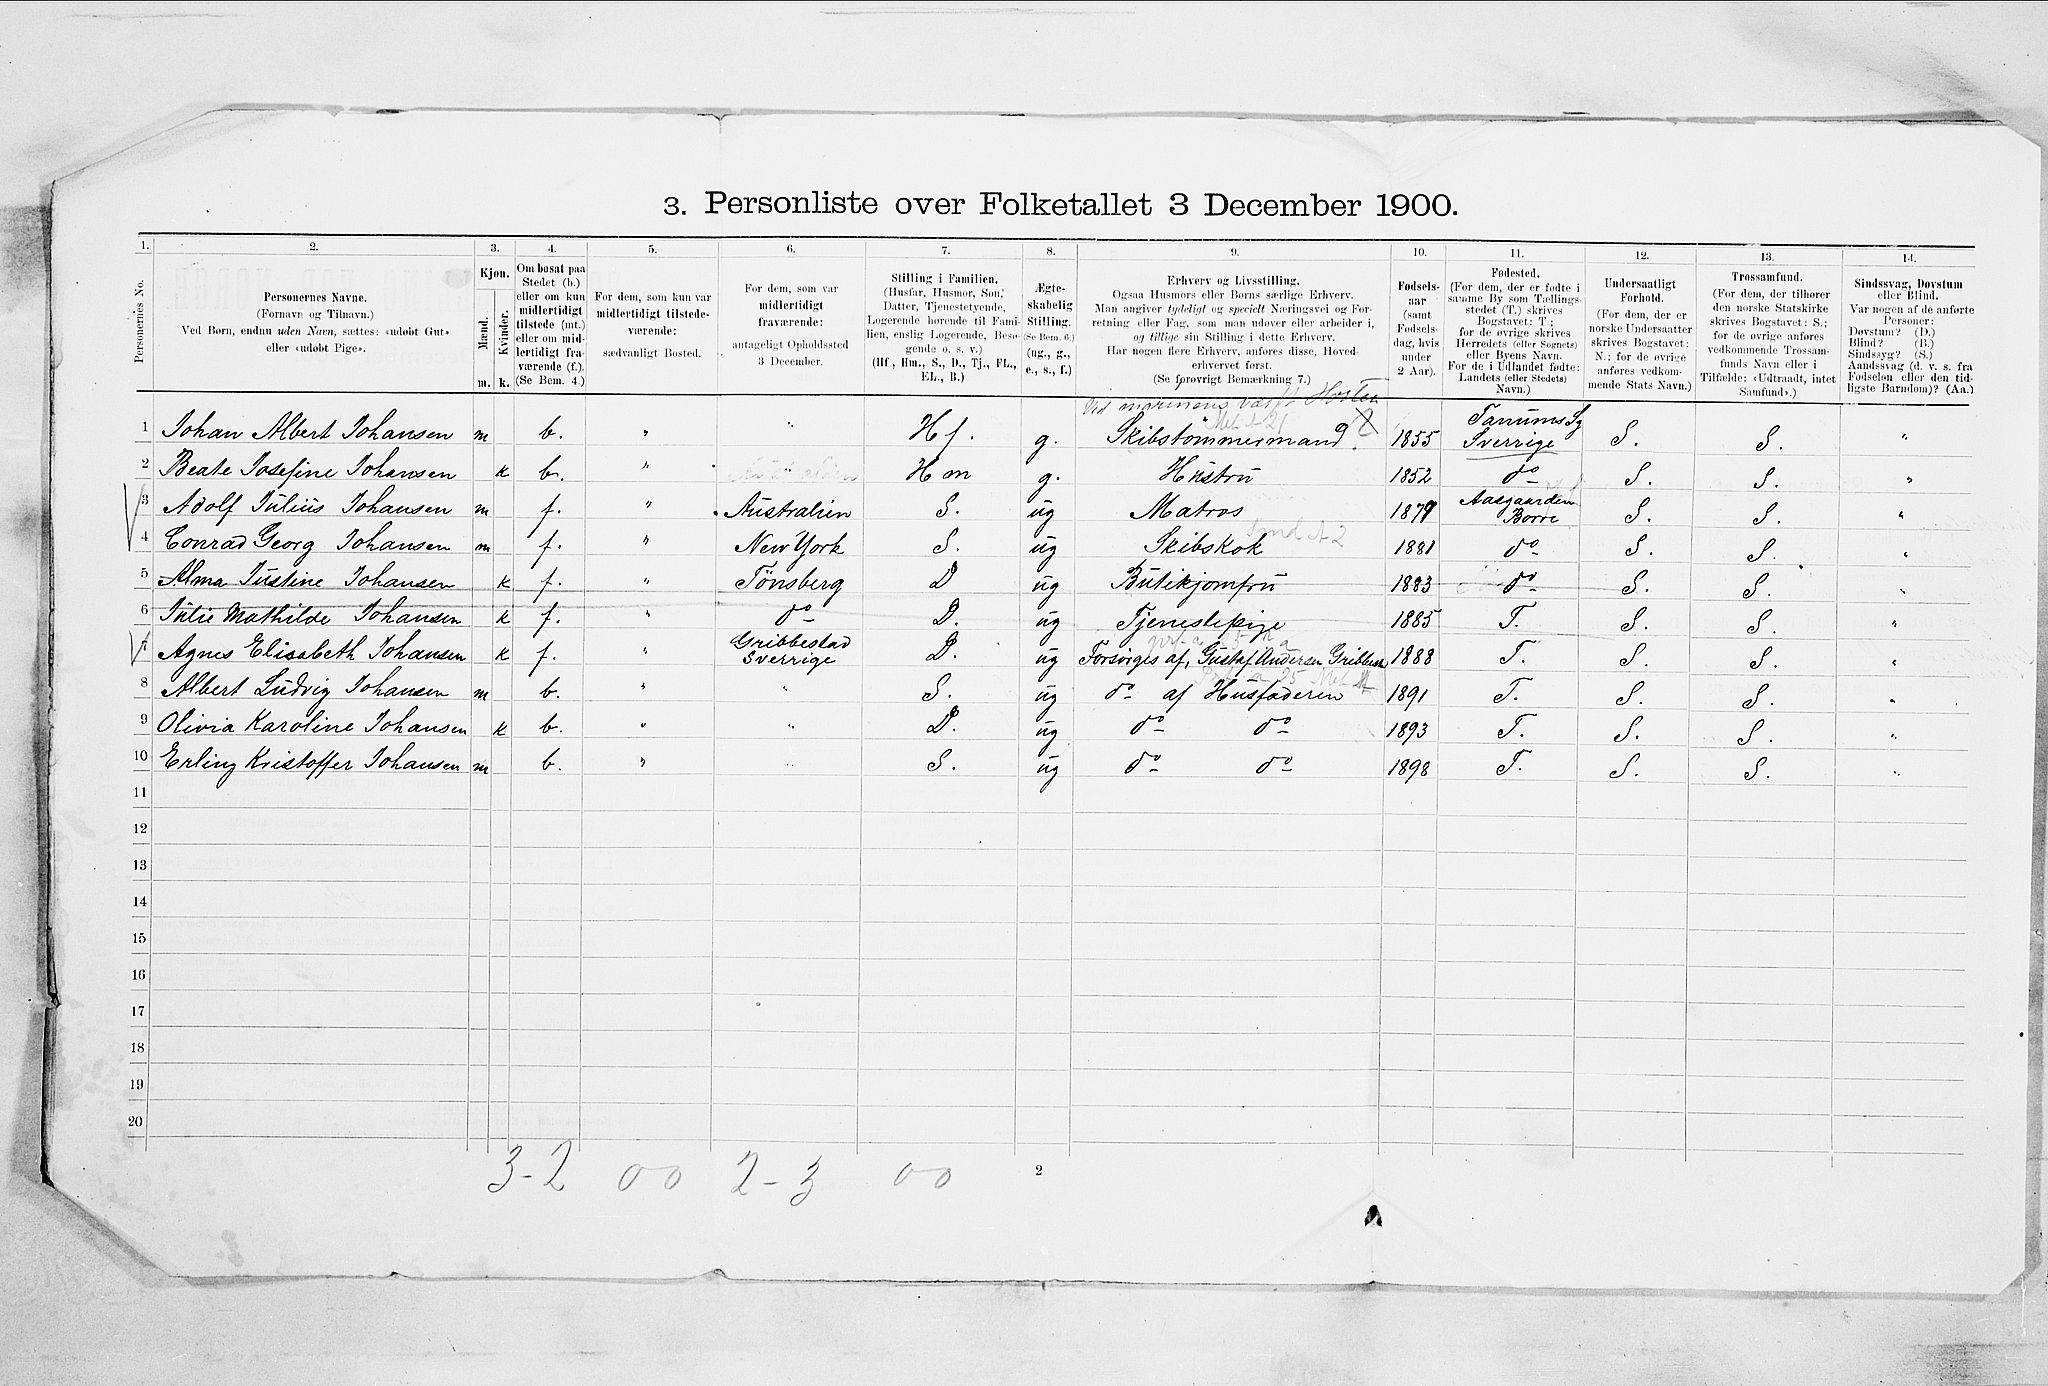 3. Personliste over Folketallet 3 December 1900.
1. 2. 3. 4. 5. 6. 7. 8. 9. 10. 11. 12. 13. 14.
Personernes No.
Personernes Navne.
(Fornavn og Tilnavn.)
Ved Børn, endnu uden Navn, sættes: «udøbt Gut»
eller «udøbt Pige».
Kjøn.
Mænd.
Kvinder.
m. k.
Om bosat paa
Stedet (b.)
eller om kun
midlertidigt
tilstede (mt.)
eller om mid-
lertidigt fra-
værende (f.).
(Se Bem. 4.)
For dem, som kun var
midlertidigt tilstede-
værende:
sædvanligt Bosted.
For dem, som var
midlertidigt
fraværende:
antageligt Opholdssted
3 December.
Stilling i Familien.
(Husfar, Husmor, Søn,
Datter, Tjenestetyende,
Logerende hørende til Fami-
lien, enslig Logerende, Besø-
gende o. s. v.)
(Hf., Hm., S., D., Tj., FL.,
EL., B.)
Ægte-
skabelig
Stilling.
(Se Bem. 6.)
(ug., g.,
e., s., f.)
Erhverv og Livsstilling.
Ogsaa Husmors eller Børns særlige Erhverv.
Man angiver tydeligt og specielt Næringsvei og For-
retning eller Fag, som man udøver eller arbeider i,
og tillige sin Stilling i dette Erhverv.
Har nogen flere Erhverv, anføres disse, Hoved-
erhvervet først.
(Se forøvrigt Bemærkning 7.)
Fødsels-
aar
(samt
Fødsels-
dag, hvis
under
2 Aar).
Fødested.
(For dem, der er fødte i
samme By som Tællings-
stedet (T.) skrives
Bogstavet: T.;
for de øvrige skrives
Herredets (eller Sognets)
eller Byens Navn.
For de i Udlandet fødte:
Landets (eller Stedets)
Navn.)
Undersaatligt
Forhold.
(For dem, der er
norske Undersaatter
skrives Bogstavet:
N.; for de øvrige
anføres vedkom-
mende Stats Navn.)
Trossamfund.
(For dem, der tilhører
den norske Statskirke
skrives Bogstavet: S.;
for de øvrige anføres
vedkommende Trossam-
funds Navn eller i
Tilfælde: «Udtraadt, intet
Samfund».)
Sindssvag, Døvstum
eller Blind.
Var nogen af de anførte
Personer:
Døvstum? (D.)
Blind? (B.)
Sindssyg? (S.)
Aandssvag (d. v. s. fra
Fødselen eller den tid-
ligste Barndom)? (Aa.)
Ved marinens værft Horten
1 Johan Albert Johansen m b. " " Hf. g. Skibstømmermand 1855 Tanums Sg Sverrige S. S. "
2 Beate Josefine Johansen k b. " Hm g. Hustru 1852 do S. S. "
3 Adolf Julius Johansen m f. " Australien S. ug Matros 1879 Aasgaarden Borre S. S. "
4 Conrad Georg Johansen m f. " New York S. ug Skibskok 1881 do S. S. "
5 Alma Justine Johansen k f. " Tönsberg D ug Butikjomfru 1883 do S. S. "
6 Julie Mathilde Johansen k f. " do D. ug Tjenestepige 1885 T. S. S. "
7 Agnes Elisabeth Johansen k f. " Gribbestad Sverrige D. ug Forsörges af, Gustaf Andersen Gribbest 1888 T. S. S. "
8 Albert Ludvig Johansen m b. " " S. ug do af Husfaderen 1891 T. S. S. "
9 Olivia Karoline Johansen k b. " " D. ug do do 1893 T. S. S. "
10 Erling Kristoffer Johansen m b. " " S. ug do do 1898 T. S. S. "
11
12
13
14
15
16
17
18
19
20
3-2 00 2-3 00
2